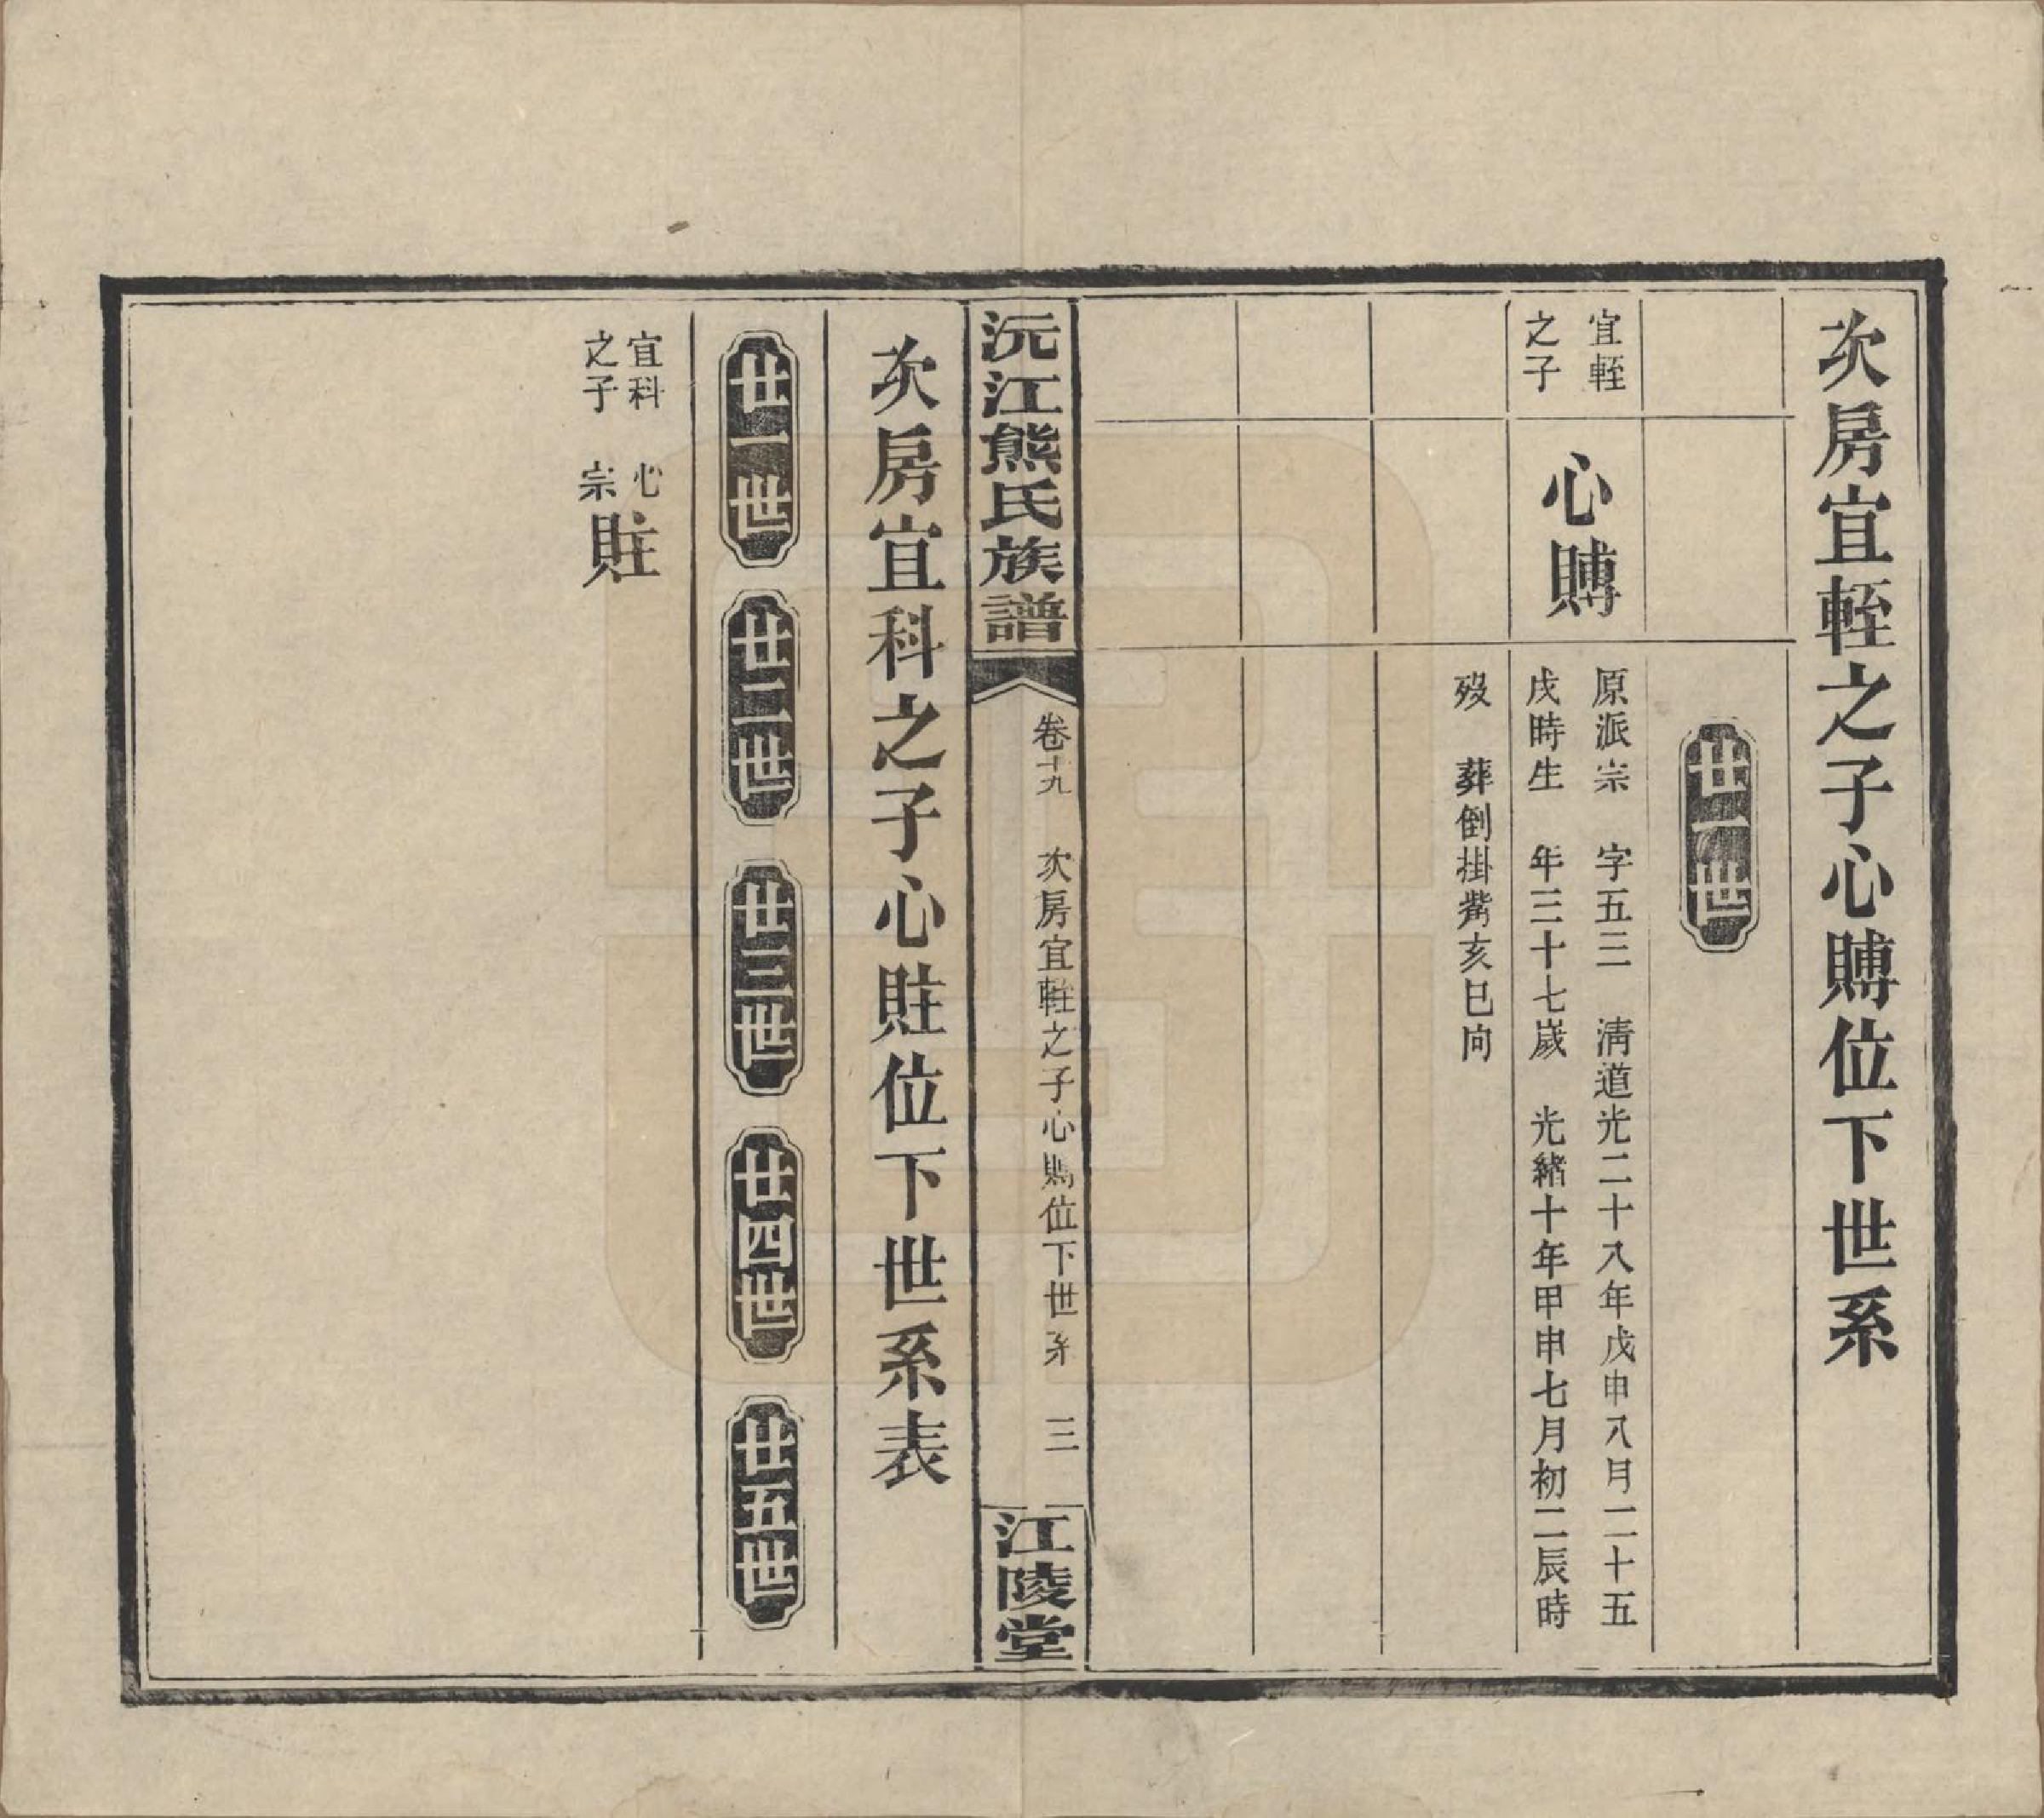 次房宜輊之子心賻位下世系
廿一世
宜輊
之子
心賻
原派宗　字五三　淸道光二十八年戊申八月二十五
戌時生　年三十七歲　光緖十年甲申七月初二辰時
歿　葬倒掛嘴亥巳向
沅江熊氏族譜
卷十九　次房宜輊之子心賻位下世系　三
江陵堂
次房宜科之子心䝬位下世系表
廿一世　廿二世　廿三世　廿四世　廿五世
宜科
之子
心
宗
䝬